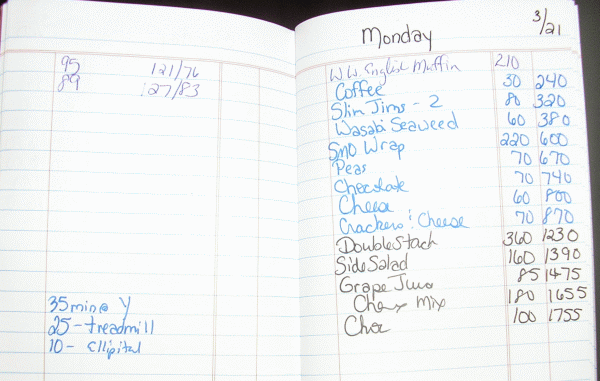 95 121/76
89 :27/83
35 min @ Y
25 - treadmill
10 - Ellipital
3/21
Monday
W.W. English Muffin 210
Coffee 30 240
Slim Jims - 2 80 320
Wasabi Seaweed 60 380
Smo Wrap 220 600
Peas 70 670
Chocolate 70 740
Cheese 60 800
Crackers & Cheese 70 870
Double Stack 360 1230
Side Salad 160 1390
Grape Juice 85 1475
Chex Mix 180 1655
100 1755